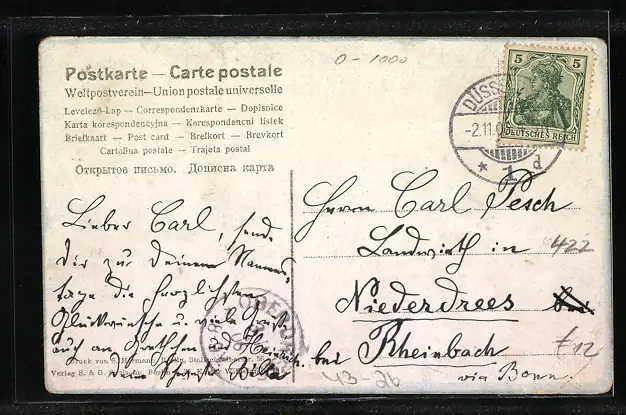 Postkarte — Carte postale
Weltpostverein — Union postale universelle
Levelező-Lap — Correspondenzkarte — Dopisnice
Karta korespondencyjna — Korespondencni listek
Briefkaart — Post card — Brefkort — Brevkort
Cartolina postale — Trajeta postal
Открытое письмо. Дописна карта
0-1000
5 5
DEUTSCHES REICH
DÜSS
-2.11.0
* 1 d
Lieber Carl, sende
Dir zu Deinem Namens-
tage die herzlichsten
Glückwünsche u. viele Grüße
auch an Gretchen und Heinrich.
Druck von S.
Verlag S. & G.
Herrn Carl Pesch
Landwirth in
Niederdrees
bei Rheinbach
via Bonn.
422
£12
43-26